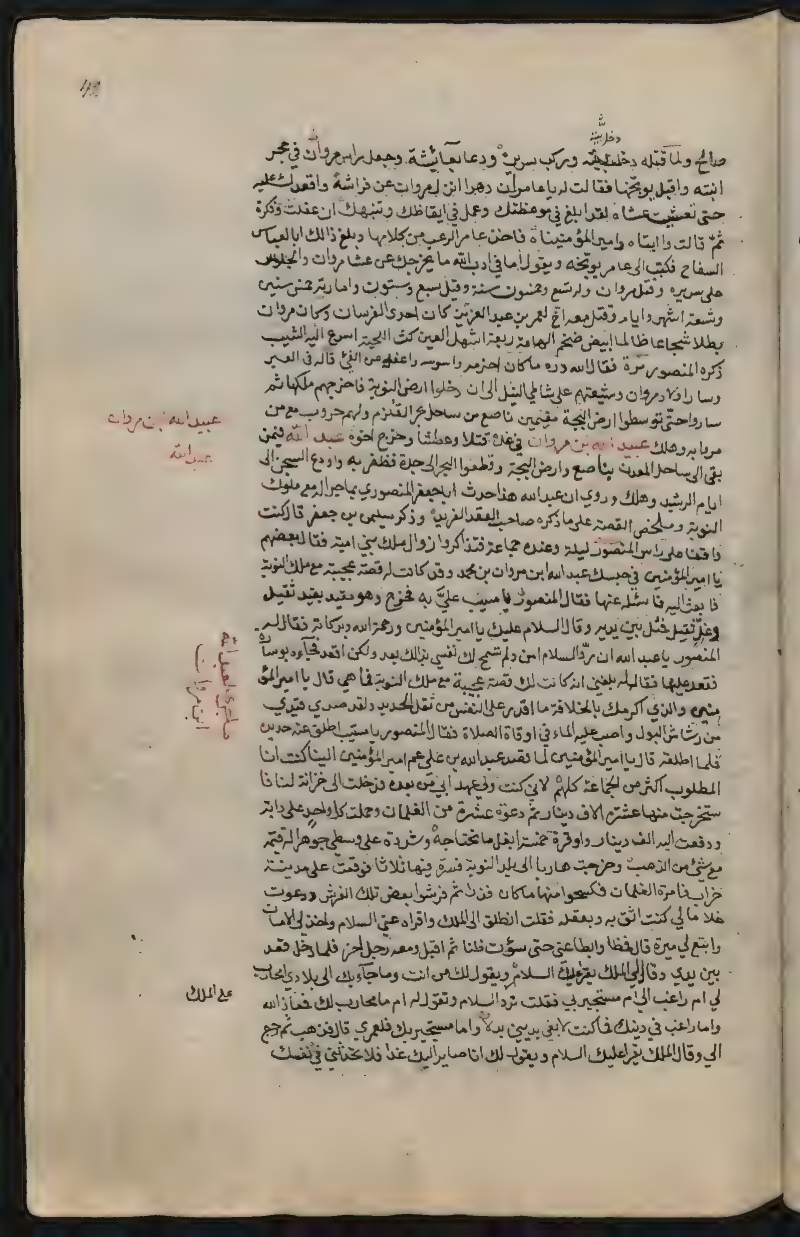 48
دخل بيته
صالح ولما قتله دخل بيته وركب سريره ودعا بعائشة وجعل راس مروان في حجر
ابنته واقبل يوبخها فقالت له يا عامر ان دهرا انزل مروان عن فراشه واقعدك عليه
حتى تعشيت عشاه لقد ابلغ في موعظتك وعمل في ايقاظك وتنبيهك ان عقلت وفكرة
ثم قالت وا ابتاه وامير المؤمنيناه فاخذ عامر الرعب من كلامها وبلغ ذالك ابا العباس
السفاح فكتب الى عامر يوبخه ويقول اما في ادب الله ما يخرجك عن عشا مروان والجلوس
على سريره وقتل مروان وله تسع وخمسون سنة وقيل سبع وستون وامارته خمس سنين
وشعة اشهر وايام وقتل معه اخ لعمر بن عبد العزيز كان احدى الفرسان وكان مروان
بطلا شجاعا ظالما ابيض ضخم الهامة ربعة اشهل العين كث اللحية اسرع اليه الشيب
ذكره المنصور مرة فقال لله دره ما كان احزمه واسوسه واعفه عن الفئ قاله في العبر
وسار اولاد مروان وشيعتهم على شاطي النيل الى ان دخلوا ارض النوبة فاخرجهم ملكها ثم
ساروا حتى توسطوا ارض البجة مقيمين ناصع من ساحل بحر القلزم ولهم حروب مع من
مروا به وهلك عبيد الله بن مروان في عدة قتلا وعطشا وخرج اخوه عبد الله فيمن
بقى الى ساحل المعدن بناصع وارض البجة وقطعوا البحر الى جدة فظفر به واودع السجن الى
ايام الرشيد وهلك وروي ان عبد الله هذا حدث ابا جعفر المنصوري بماجرا له مع ملوك
النوبة وملخص القصة على ما ذكره صاحب العقد الفريد وذكر سليمن بن جعفر قال كنت
واقفا على راس المنصور ليلة وعنده جماعة فتذاكروا زوال ملك بني امية فقال بعضهم
يا امير المؤمنين في حبسك عبد الله ابن مروان بن محمد وقد كانت له قصة عجيبة مع ملك النوبة
فابعث اليه فاسئله عنها فقال المنصور يا مسيب عليّ به فخرج وهو مقيد بقيد ثقيل
وغل ثقيل فمثل بين يديه وقال السلام عليك يا امير المؤمنين ورحمة الله وبركاته فقال له
المنصور يا عبد الله ان رد السلام امن ولم تسمح لك نفسي بذالك بعد ولكن اقعد فجآءوه بوسادة
فقعد عليها فقال له بلغني انه كانت لك قصة عجيبة مع ملك النوبة فما هي قال يا امير المؤ
منين والذي اكرمك بالخلافة ما اقدر على النفس من ثقل الحديد ولقد صدي قيدي
من رشاش البول واصب عليه الماء في اوقاة الصلاة فقال المنصور يا مسيب اطلق عنه حديده
فلما اطلقه قال يا امير المؤمنين لما قصد عبد الله بن علي عم امير المؤمنين الينا كنت انا
المطلوب اكثر من الجماعة كلهم لاني كنت ولي عهد ابي من بعده فدخلت الى خزانة لنا فا
ستخرجت منها عشرة الاف دينار ثم دعوة عشرة من الغلمان وحملت كل واحد على دابة
ودفعت اليه الف دينار واوقرة خمسة ابغل ما نحتاجه وشددة على وسطي جوهرا له قيمة
مع شئ من الذهب وخرجت هاربا الى بلد النوبة فسرة فيها ثلاثا فوقعت على مدينة
خراب فامرة الغلمان فكسحوا منها ما كان قذرا ثم فرشوا بعض تلك الفرش ودعوت
غلاما لي كنت اثق به وبعقله فقلت انطلق الى الملك واقراه عني السلام وخذ لي الامان
وابتع لي ميرة قال فمضا وابطا عني حتى سؤت ظنا ثم اقبل ومعه رجل اخر فلما دخل قعد
بين يدي وقال لي الملك يقرا عليك السلام ويقول لك من انت وما جآء بك الى بلادي امحارب
لي ام راغب الي ام مستجير بي فقلت ترد السلام وتقول له ام ما محارب لك فمعاذ الله
واما راغب في دينك فما كنت لابغي بديني بدلا واما مستجير بك فلعمري قال فذهب ثم رجع
الي وقال الملك يقرا عليك السلام ويقول لك انا صاير اليك غدا فلا تحدثن في نفسك
عبيد الله بن مروان
عبد الله
ماجرى لعبد الله
ابن مروان
على الملك